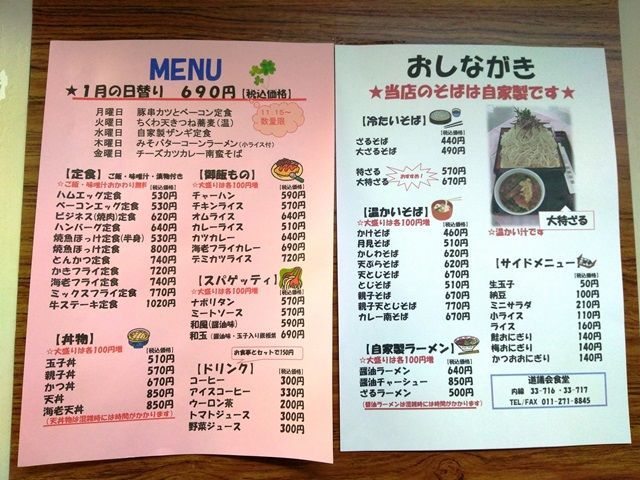 MENU
★1月の日替り 690円【税込価格】
月曜日 豚串カツとベーコン定食
火曜日 ちくわ天きつね蕎麦(温)
水曜日 自家製ザンギ定食
木曜日 みそバターコーンラーメン(小ライス付)
金曜日 チーズカツカレー南蛮そば
11:15~
数量限
【定食】ご飯・味噌汁・漬物付き
☆ご飯・味噌汁おかわり無料 【税込価格】
ハムエッグ定食 530円
ベーコンエッグ定食 530円
ビジネス(焼肉)定食 620円
ハンバーグ定食 640円
焼魚ほっけ定食(半身) 530円
焼魚ほっけ定食 800円
とんかつ定食 740円
かきフライ定食 720円
海老フライ定食 740円
ミックスフライ定食 770円
牛ステーキ定食 1020円
【丼物】
☆大盛りは各100円増 【税込価格】
玉子丼 510円
親子丼 570円
かつ丼 670円
天丼 850円
海老天丼 850円
(天丼物は混雑時には時間がかかります)
【御飯もの】
☆大盛りは各100円増 【税込価格】
チャーハン 590円
チキンライス 570円
オムライス 640円
カレーライス 510円
カツカレー 640円
海老フライカレー 690円
デミカツライス 640円
【スパゲッティ】
☆大盛りは各100円増 【税込価格】
ナポリタン 570円
ミートソース 570円
和風(醤油味) 590円
和玉(醤油味・玉子入り鉄板焼) 690円
お食事とセットで150円
【ドリンク】 【税込価格】
コーヒー 300円
アイスコーヒー 330円
ウーロン茶 300円
トマトジュース 300円
野菜ジュース 300円
おしながき
★当店のそばは自家製です★
【冷たいそば】 【税込価格】
ざるそば 440円
大ざるそば 490円
特ざる 570円
大特ざる 670円
おすすめ!
大特ざる
☆温かい汁です
【温かいそば】
☆大盛りは各100円増 【税込価格】
かけそば 460円
月見そば 510円
かしわそば 560円
天ぷらそば 620円
天とじそば 670円
とじそば 510円
親子そば 640円
親子天とじそば 770円
カレー南そば 640円
【自家製ラーメン】
☆大盛りは各100円増 【税込価格】
醤油ラーメン 640円
醤油チャーシュー 850円
ざるラーメン 500円
(醤油ラーメンは混雑時には時間がかかります)
【サイドメニュー】
【税込価格】
生玉子 50円
納豆 100円
ミニサラダ 210円
小ライス 110円
ライス 160円
鮭おにぎり 140円
梅おにぎり 140円
かつおおにぎり 140円
道議会食堂
内線 33-716・33-717
TEL/FAX 011-271-8845